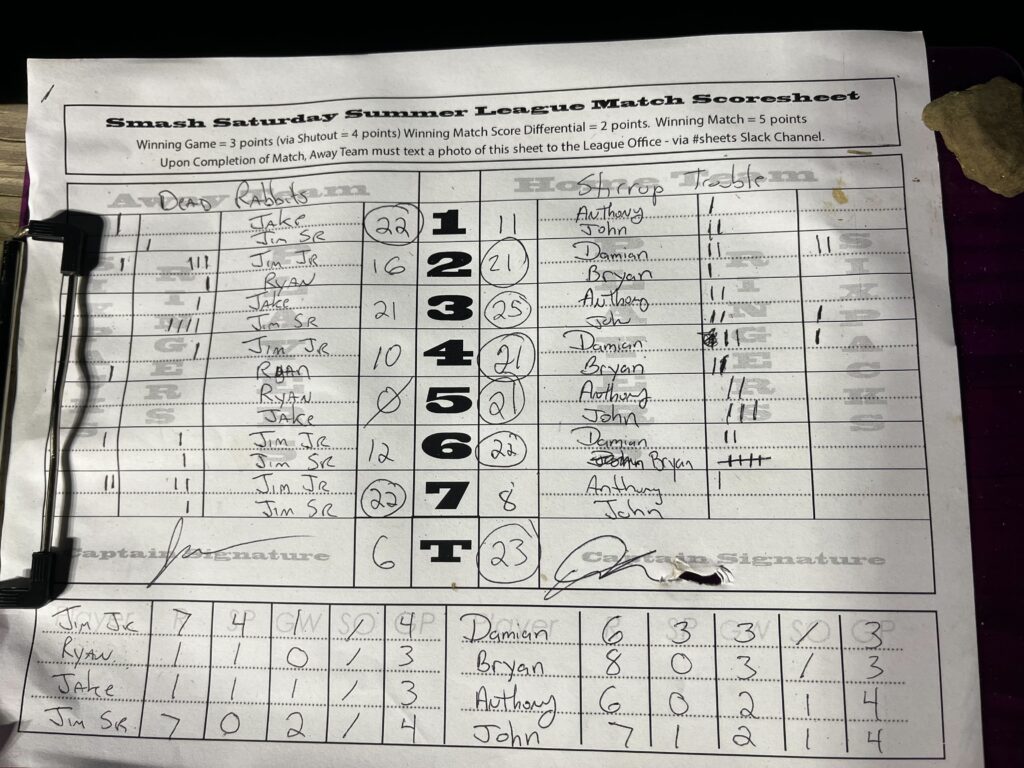 Smash Saturday Summer League Match Scoresheet
Winning Game = 3 points (via Shutout = 4 points) Winning Match Score Differential = 2 points. Winning Match = 5 points
Upon Completion of Match, Away Team must text a photo of this sheet to the League Office - via #sheets Slack Channel.
Away Team Home Team
Dead Rabbits Stirrup Trouble
Jake 22 1 11 Anthony
Jim Sr John
Jim Jr 16 2 21 Damian
Ryan Bryan
Jake 21 3 25 Anthony
Jim Sr Joh
Jim Jr 10 4 21 Damian
Ryan Bryan
Ryan 0 5 21 Anthony
Jake John
Jim Jr 12 6 22 Damian
Jim Sr Bryan
Jim Jr 22 7 8 Anthony
Jim Sr John
6 T 23
Captain Signature Captain Signature
Player R SP GW SO GP Player R SP GW SO GP
Jim Jr 7 4 1 / 4 Damian 6 3 3 / 3
Ryan 1 1 0 / 3 Bryan 8 0 3 / 3
Jake 1 1 1 / 3 Anthony 6 0 2 1 4
Jim Sr. 7 0 2 / 4 John 7 1 2 1 4